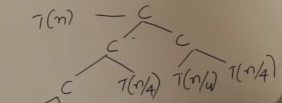 T(n) — C
C C
C T(n/4) T(n/4) T(n/4)